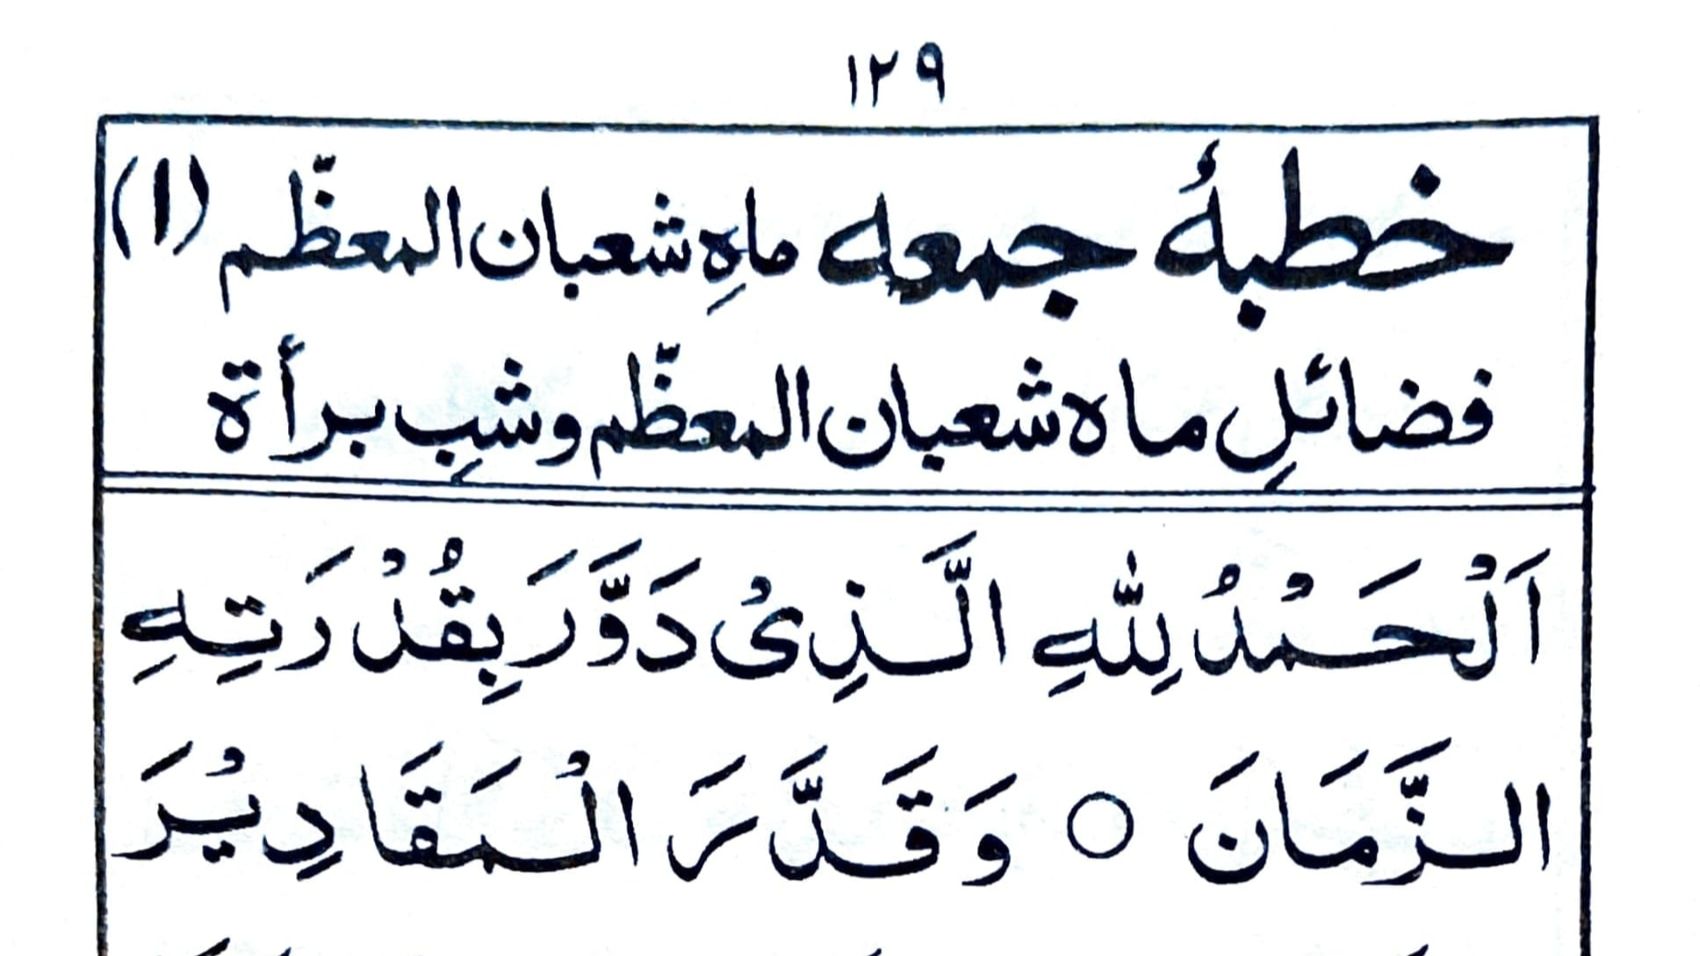 ١٢٩
خطبهٔ جمعه ماہِ شعبان المعظّم (١)
فضائلِ ماہ شعبان المعظّم و شبِ برأة
اَلْحَمْدُ لِلّٰهِ الَّذِىْ دَوَّرَ بِقُدْرَتِهِ
الزَّمَانَ ○ وَقَدَّرَ الْمَقَادِيْرَ